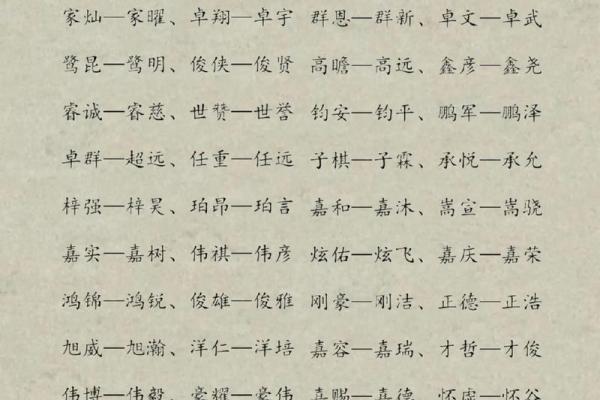 家灿—家曜、卓翔—卓宇 群恩—群新、卓文—卓武
鹭昆—鹭明、俊侠—俊贤 高瞻—高远、鑫彦—鑫尧
睿诚—睿慈、世赞—世誉 钧安—钧平、鹏军—鹏泽
卓群—超远、任重—任远 子棋—子霖、承悦—承允
梓强—梓昊、珀昂—珀言 嘉和—嘉沐、嵩宣—嵩骁
嘉实—嘉树、伟祺—伟彦 炫佑—炫飞、嘉庆—嘉荣
鸿锦—鸿锐、俊雄—俊雅 刚豪—刚洁、正德—正浩
旭威—旭瀚、洋仁—洋培 嘉容—嘉瑞、才哲—才俊
伟博—伟毅、豪耀—豪伟 嘉赐—嘉德、怀虚—怀谷